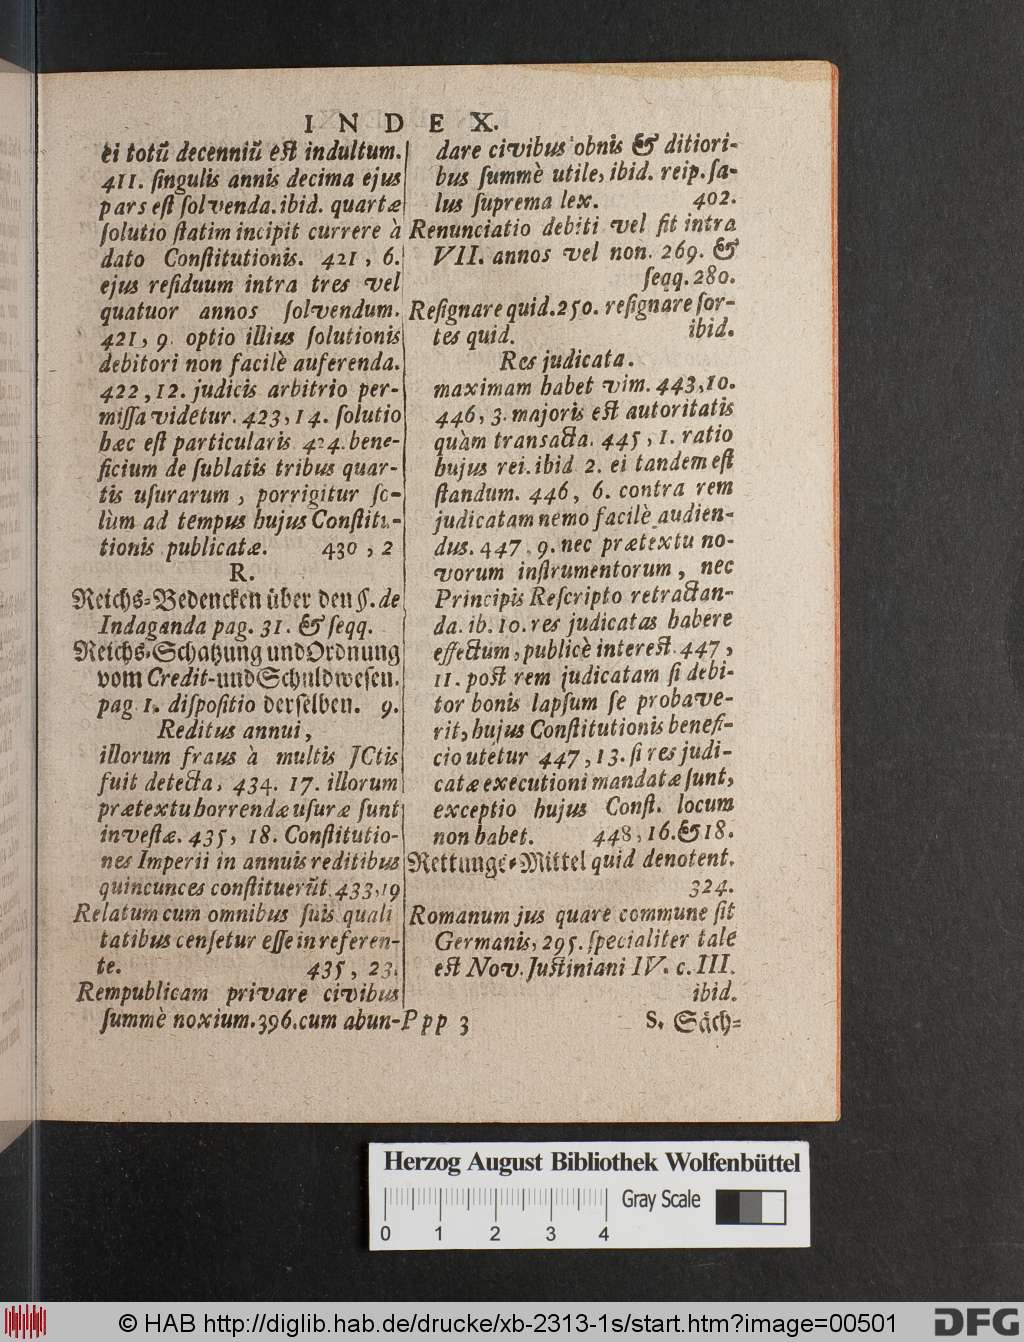 INDEX.
ei totū decenniū est indultum.
411. ſingulis annis decima ejus
pars eſt ſolvenda. ibid. quartæ
ſolutio ſtatim incipit currere à
dato Conſtitutionis. 421, 6.
ejus reſiduum intra tres vel
quatuor annos ſolvendum.
421, 9. optio illius ſolutionis
debitori non facilè auferenda.
422, 12. judicis arbitrio per-
miſſa videtur. 423, 14. ſolutio
hæc eſt particularis 424. bene-
ficium de ſublatis tribus quar-
tis uſurarum, porrigitur ſo-
lùm ad tempus hujus Conſtitu-
tionis publicatæ. 430, 2
R.
Reichs-Bedencken über den §. de
Indaganda pag. 31. & ſeqq.
Reichs-Schatzung und Ordnung
vom Credit- und Schuldweſen.
pag 1. diſpoſitio derſelben. 9.
Reditus annui,
illorum fraus à multis JCtis
fuit detecta, 434. 17. illorum
prætextu horrendæ uſuræ ſunt
invectæ. 435, 18. Conſtitutio-
nes Imperii in annuis reditibus
quincunces conſtituerūt. 433, 19
Relatum cum omnibus ſuis quali
tatibus cenſetur eſſe in referen-
te. 435, 23.
Rempublicam privare civibus
ſummè noxium. 396. cum abun-
dare civibus obnis & ditiori-
bus ſummè utile, ibid. reip. ſa-
lus ſuprema lex. 402.
Renunciatio debiti vel fit intra
VII. annos vel non. 269. &
ſeqq. 280.
Reſignare quid. 250. reſignare ſor-
tes quid. ibid.
Res judicata.
maximam habet vim. 443, 10.
446, 3. majoris est autoritatis
quàm transacta. 445, 1. ratio
hujus rei. ibid 2. ei tandem eſt
ſtandum. 446, 6. contra rem
judicatam nemo facilè audien-
dus. 447, 9. nec prætextu no-
vorum inſtrumentorum, nec
Principis Reſcripto retractan-
da. ib. 10. res judicatas habere
effectum, publicè interest. 447,
11. post rem judicatam ſi debi-
tor bonis lapſum ſe probave-
rit, hujus Conſtitutionis benefi-
cio utetur 447, 13. ſi res judi-
catæ executioni mandatæ ſunt,
exceptio hujus Conſt. locum
non habet. 448, 16. & 18.
Rettungs-Mittel quid denotent.
324.
Romanum jus quare commune ſit
Germanis, 295. ſpecialiter tale
est Nov. Justiniani IV. c. III.
ibid.
Ppp 3 S. Säch-
Herzog August Bibliothek Wolfenbüttel
Gray Scale
0 1 2 3 4
© HAB http://diglib.hab.de/drucke/xb-2313-1s/start.htm?image=00501
DFG